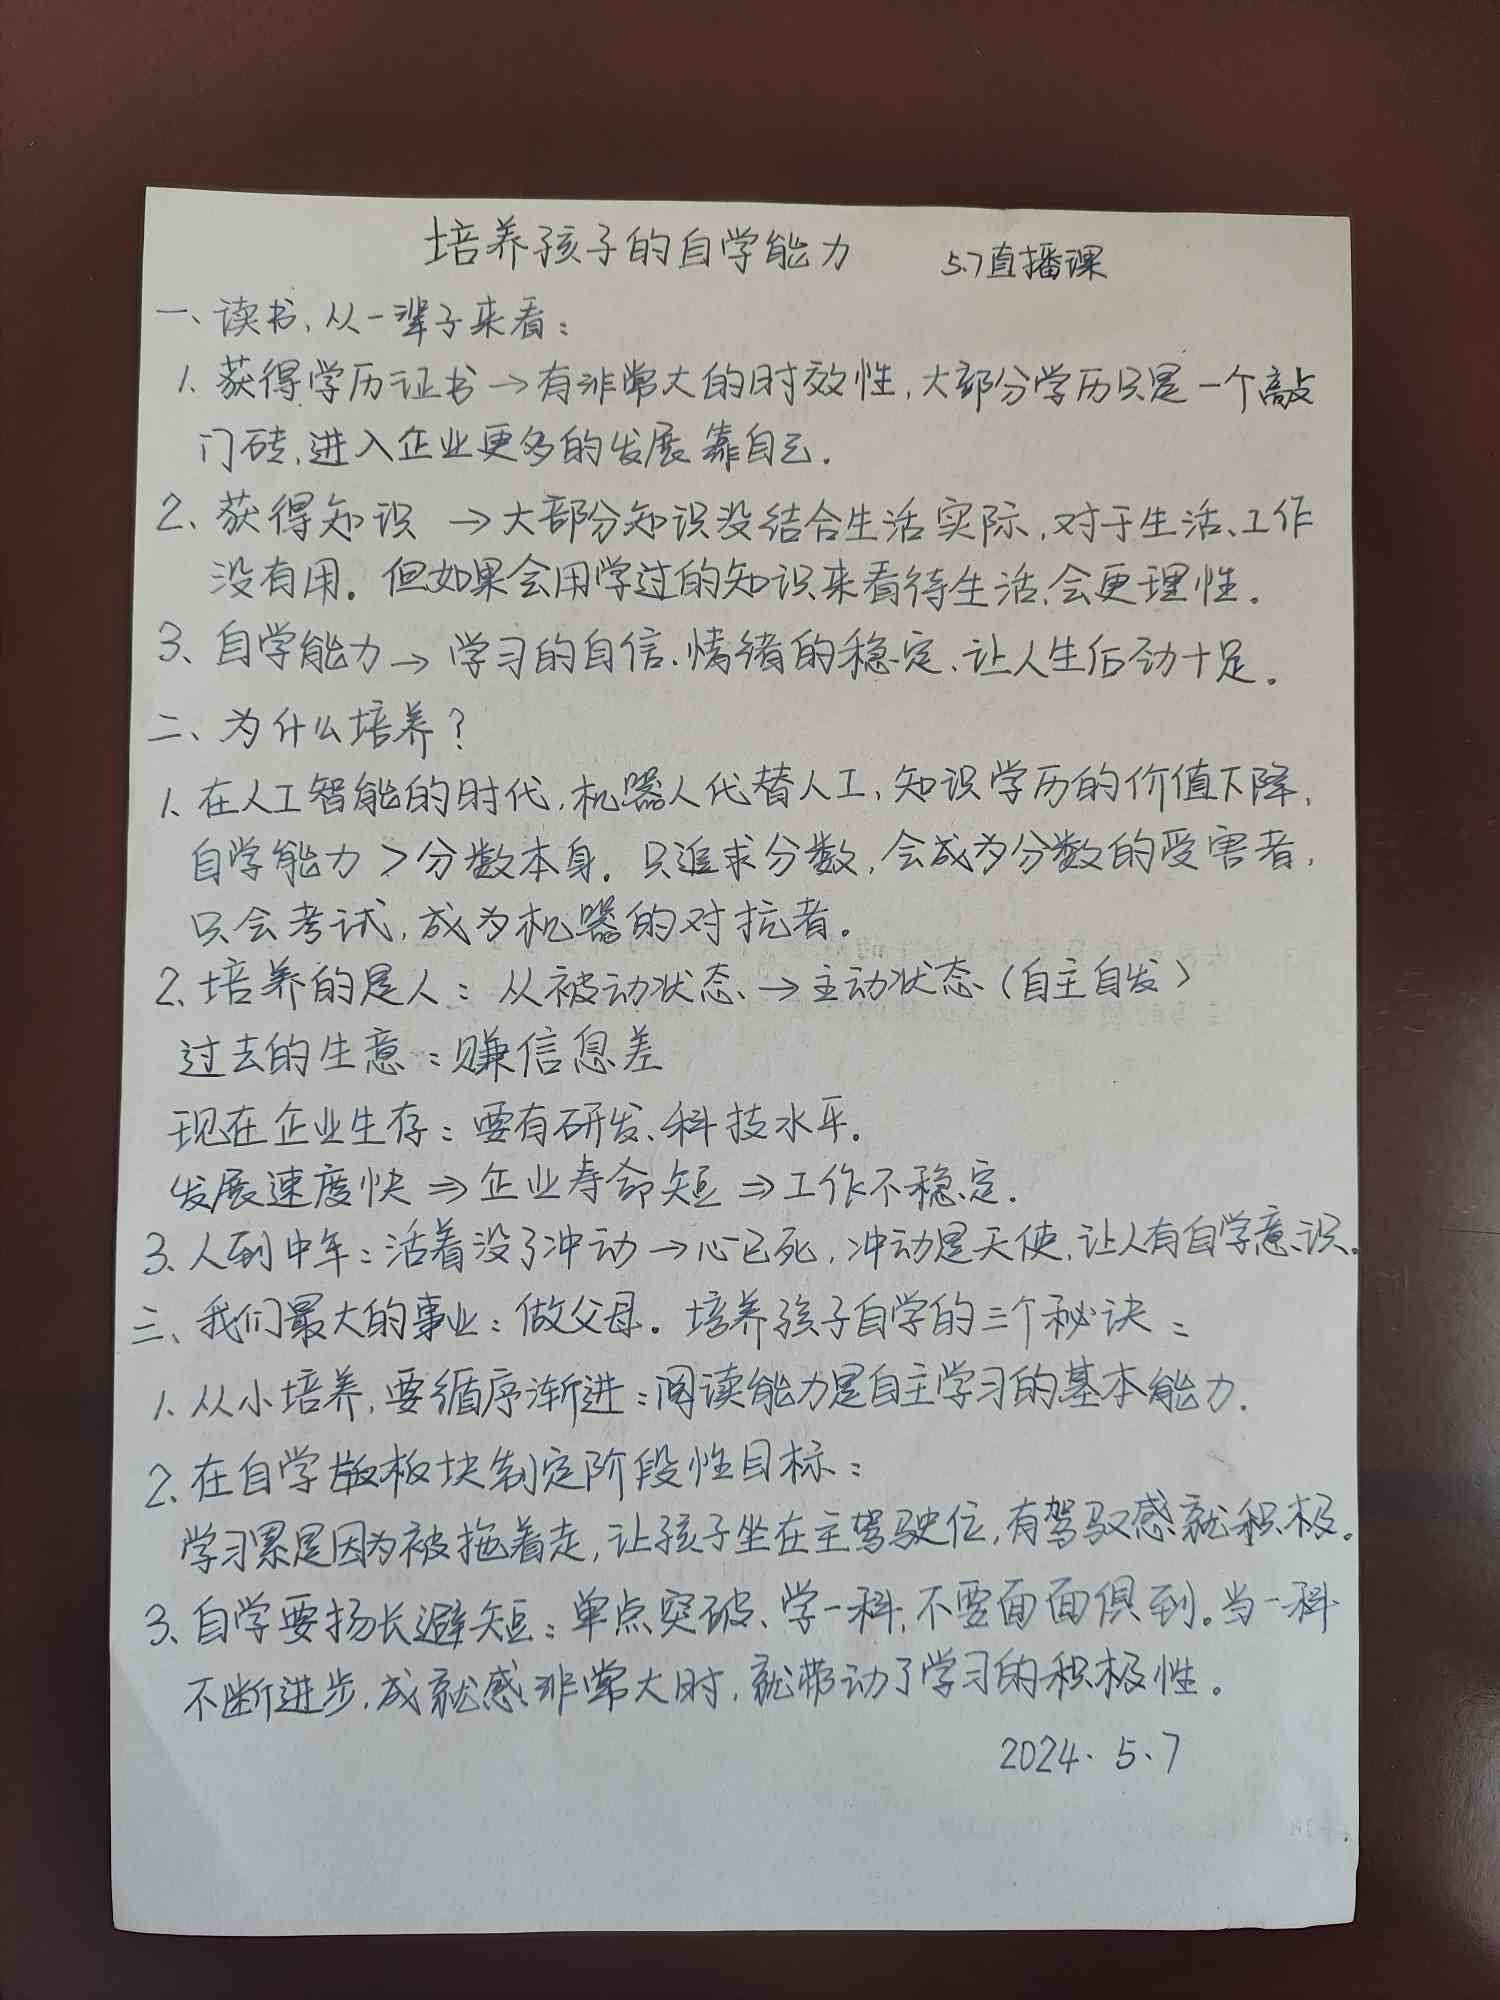 培养孩子的自学能力 5.7直播课
一、读书、从一辈子来看：
1. 获得学历证书→有非常大的时效性，大部分学历只是一个敲
门砖，进入企业更多的发展靠自己.
2、获得知识 →大部分知识没结合生活实际，对于生活、工作
没有用。但如果会用学过的知识来看待生活，会更理性。
3、自学能力→学习的自信、情绪的稳定、让人生后劲十足。
二、为什么培养？
1、在人工智能的时代，机器人代替人工，知识学历的价值下降，
自学能力＞分数本身. 只追求分数，会成为分数的受害者，
只会考试，成为机器的对抗者。
2、培养的是人：从被动状态→主动状态（自主自发）
过去的生意：赚信息差
现在企业生存：要有研发、科技水平.
发展速度快⇒企业寿命短⇒工作不稳定.
3、人到中年：活着没了冲动→心已死，冲动是天使，让人有自学意识。
三、我们最大的事业：做父母。培养孩子自学的三个秘诀：
1、从小培养，要循序渐进：阅读能力是自主学习的基本能力.
2、在自学板块制定阶段性目标：
学习累是因为被拖着走，让孩子坐在主驾驶位，有驾驭感就积极。
3、自学要扬长避短：单点突破、学一科，不要面面俱到。当一科
不断进步，成就感非常大时，就带动了学习的积极性。
2024.5.7